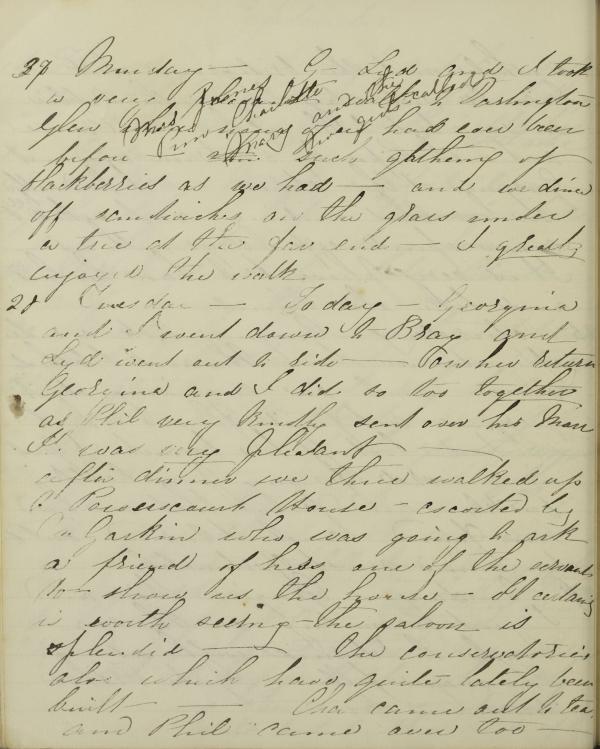 Monday — G Lyd and I took
a very pleasant walk to Darlington
Mrs Jones
Charlotte
Mary and
Glen where many of us had ever been
before — such gathering of
blackberries as we had — and we dined
off sandwiches on the grass under
a tree at the far end — I greatly
enjoyed the walk
Tuesday — Today — Georgina
and I went down to Bray and
Lyd went out to ride — On her return
Georgina and I did so too together
as Phil very kindly sent over his Mare
It was very pleasant —
after dinner we three walked up
Powerscourt House — escorted by
Gaskin who was going to ask
a friend of hers one of the servants
to show us the house — It certainly
is worth seeing — the saloon is
splendid — The conservatories
also which have quite lately been
built — Cha came out to tea
and Phil came over too —